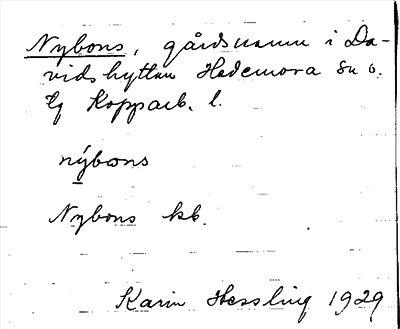 Nybons, gårdsnamn i Da-
vidshyttan Hedemora sn o.
tg Kopparb. l.
nýbons
Nybons kb.
Karin Hessling 1929